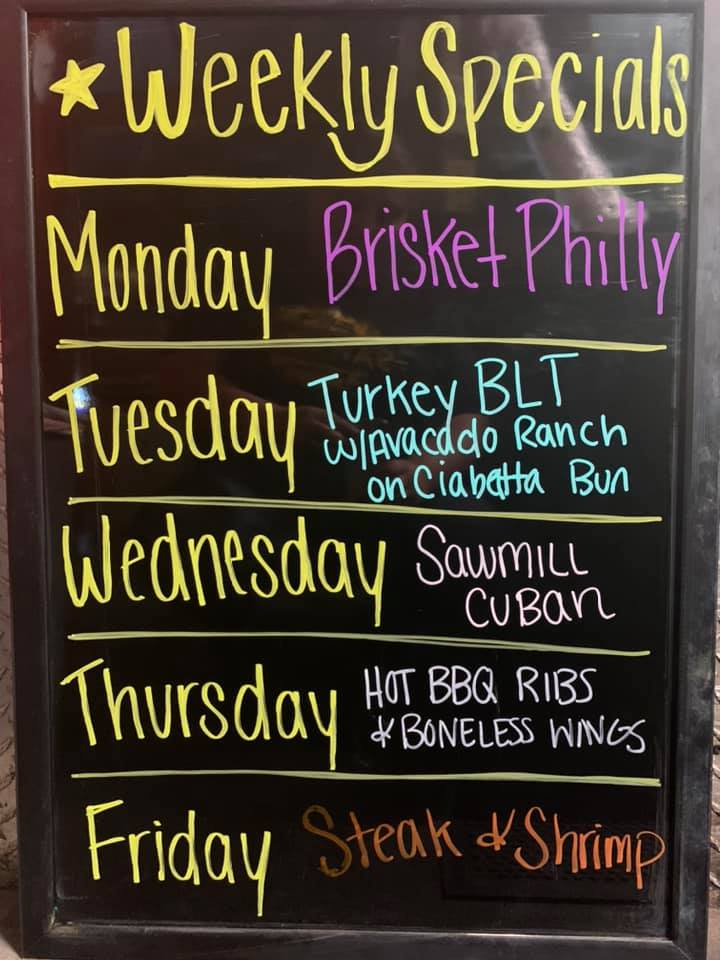 Weekly Specials
Monday Brisket Philly
Tuesday Turkey BLT
w/Avacado Ranch
on Ciabatta Bun
Wednesday Sawmill
Cuban
Thursday HOT BBQ RIBS
& BONELESS WINGS
Friday Steak & Shrimp